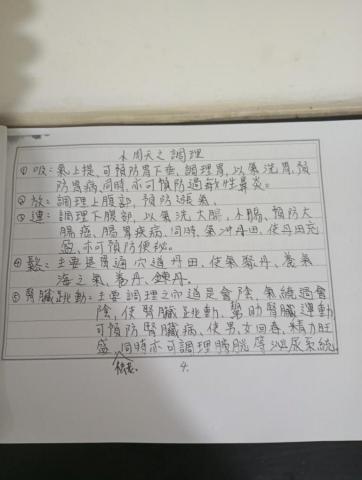 小周天之調理
①吸：氣上提，可預防胃下垂，調理胃，以氣洗胃，預
防胃病，同時，亦可預防過敏性鼻炎。
②放：調理上腹部，預防脹氣。
③運：調理下腹部，以氣洗大腸、小腸，預防大
腸癌，腸胃疾病，同時，氣沖丹田，使丹田充
盈，亦可預防便秘。
④鬆：主要是貫通穴道丹田，使氣聚丹，養氣
海之氣，養丹、鍊丹。
⑤腎臟跳動：主要調理之穴道是會陰，氣繞過會
陰，使腎臟跳動，幫助腎臟運動
可預防腎臟病，使男、女回春，精力旺
盛，同時亦可調理膀胱等泌尿系統。
4.